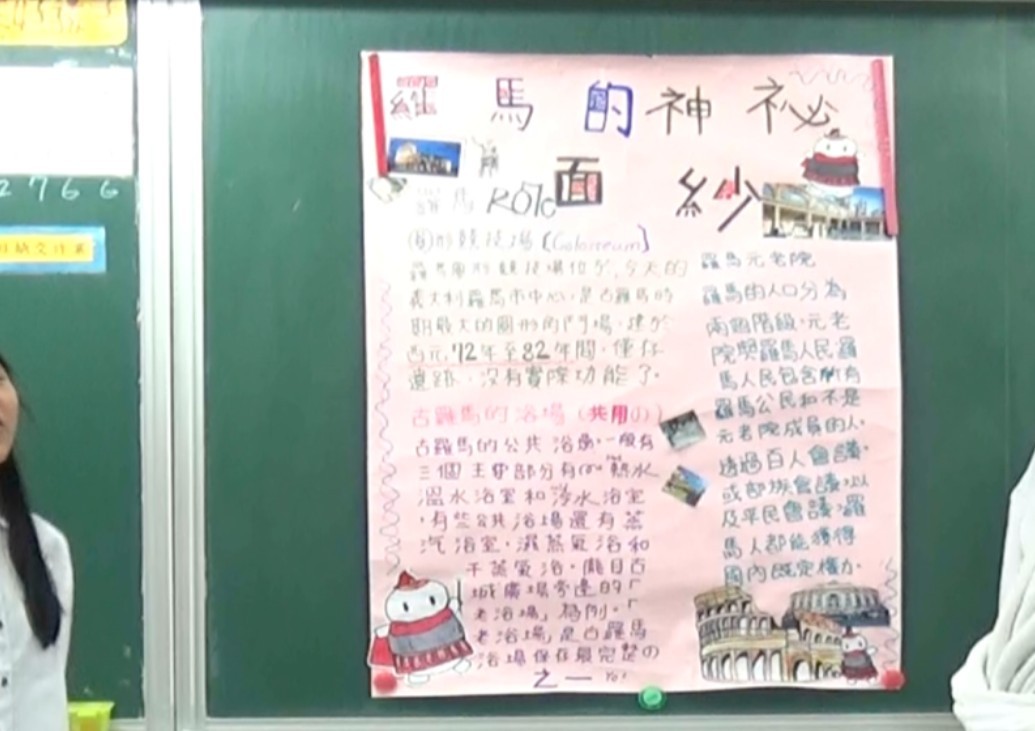 2 7 6 6
羅馬的神祕
面紗
羅馬
圓形競技場
羅馬圓形競技場位於,今天的
義大利羅馬市中心,是古羅馬時
期最大的圓形角鬥場,建於
西元72年至82年間,僅存
遺跡,沒有實際功能了。
古羅馬的浴場(共用の)
古羅馬的公共浴場,一般有
三個主要部分有 熱水
溫水浴室和冷水浴室
,有些公共浴場還有蒸
汽浴室,濕蒸氣浴和
干蒸氣浴。龐貝古
城廣場旁邊的「
老浴場」為例。「
老浴場」是古羅馬
浴場保存最完整の
之一
羅馬元老院
羅馬的人口分為
兩個階段,元老
院與羅馬人民羅
馬人民包含所有
羅馬公民和不是
元老院成員的人,
透過百人會議,
或部族會議,以
及平民會議,羅
馬人都能獲得
國內既定權力。